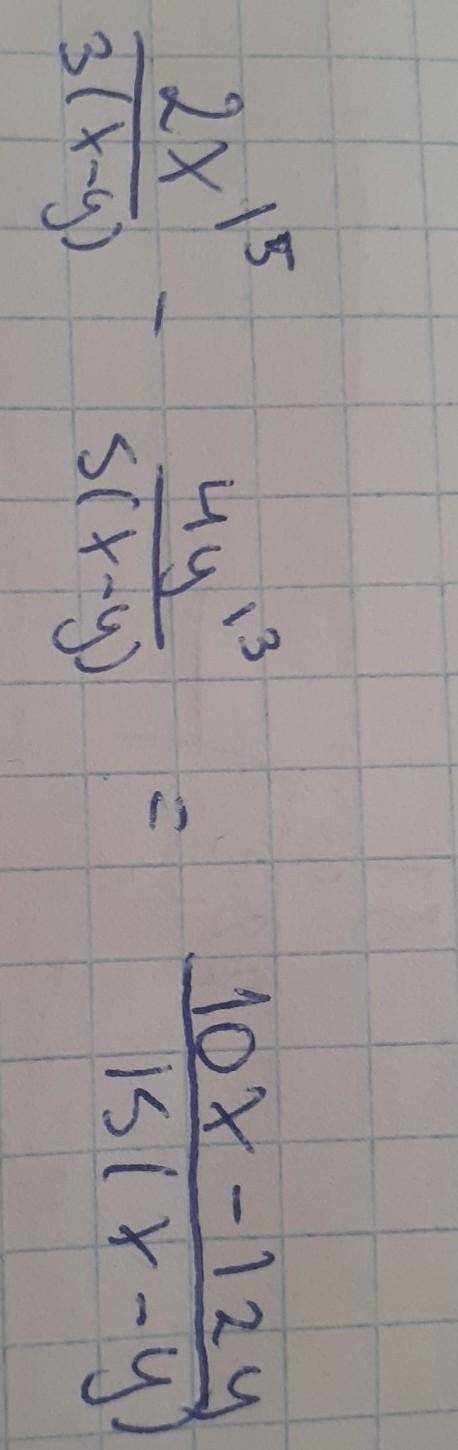 2x^{\5} / 3(x-y) - 4y^{\3} / 5(x-y) = 10x - 12y / 15(x-y)